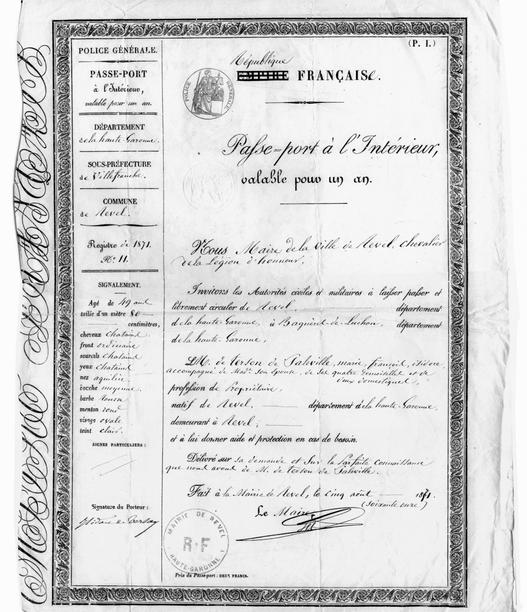 (P. I.)
POLICE GÉNÉRALE.
PASSE-PORT
à l'Intérieur,
valable pour un an.
DÉPARTEMENT
de la haute Garonne.
SOUS-PRÉFECTURE
de Villefranche.
COMMUNE
de Revel.
Registre de 1871.
N.º 11.
SIGNALEMENT.
Agé de 49 ans
taille d'un mètre 80
centimètres,
cheveux chatains
front ordinaire
sourcils chatains
yeux chatains
nez aquilin
bouche moyenne
barbe
menton rond
visage ovale
teint clair.
SIGNES PARTICULIERS:
Signature du Porteur:
République
EMPIRE FRANÇAISe.
Passe-port à l'Intérieur,
valable pour un an.
Nous Maire de la ville de Revel, chevalier
de la Légion d'honneur,
Invitons les Autorités civiles et militaires à laisser passer et
librement circuler de Revel, département
d de la haute Garonne, à Bagnères de Luchon, département
de la haute Garonne.
M. de Verson de Paleville, marie françois, isidore
accompagné de Mad. son épouse, de ses quatre demoiselles et de
cinq domestiques.
profession de Propriétaire
natif de Revel, département de la haute Garonne,
demeurant à Revel,
et à lui donner aide et protection en cas de besoin.
Délivré sur sa demande et sur la parfaite connaissance
que nous avons de M. de Verson de Paleville.
Fait à la Mairie de Revel, le cinq août 1871.
(soixante onze)
Le Maire
MAIRIE DE REVEL
R-F
HAUTE-GARONNE
Prix du Passe-port: DEUX FRANCS.